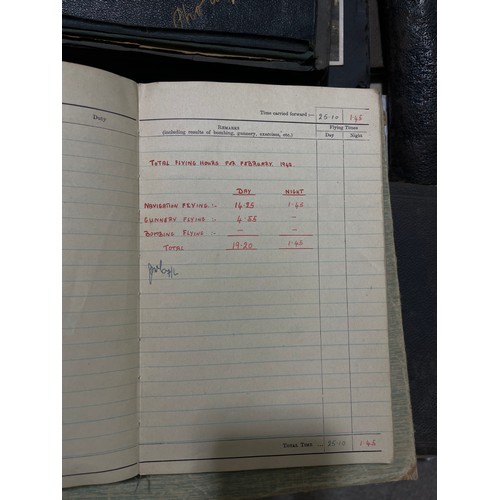 Duty
Time carried forward :— 25·10 1·45
REMARKS
(including results of bombing, gunnery, exercises, etc.)
Flying Times
Day Night
TOTAL FLYING HOURS FOR FEBRUARY.
DAY NIGHT
NAVIGATION FLYING :- 14·25 1·45
GUNNERY FLYING :- 4·55 –
BOMBING FLYING :- – –
TOTAL 19·20 1·45
TOTAL TIME 25·10 1·45